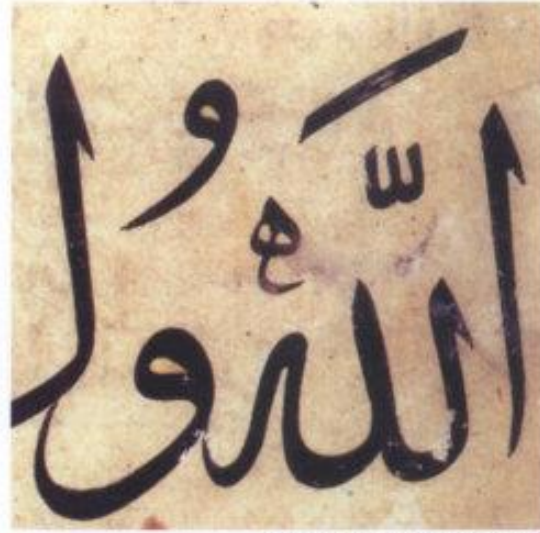 اللَّهُ ول